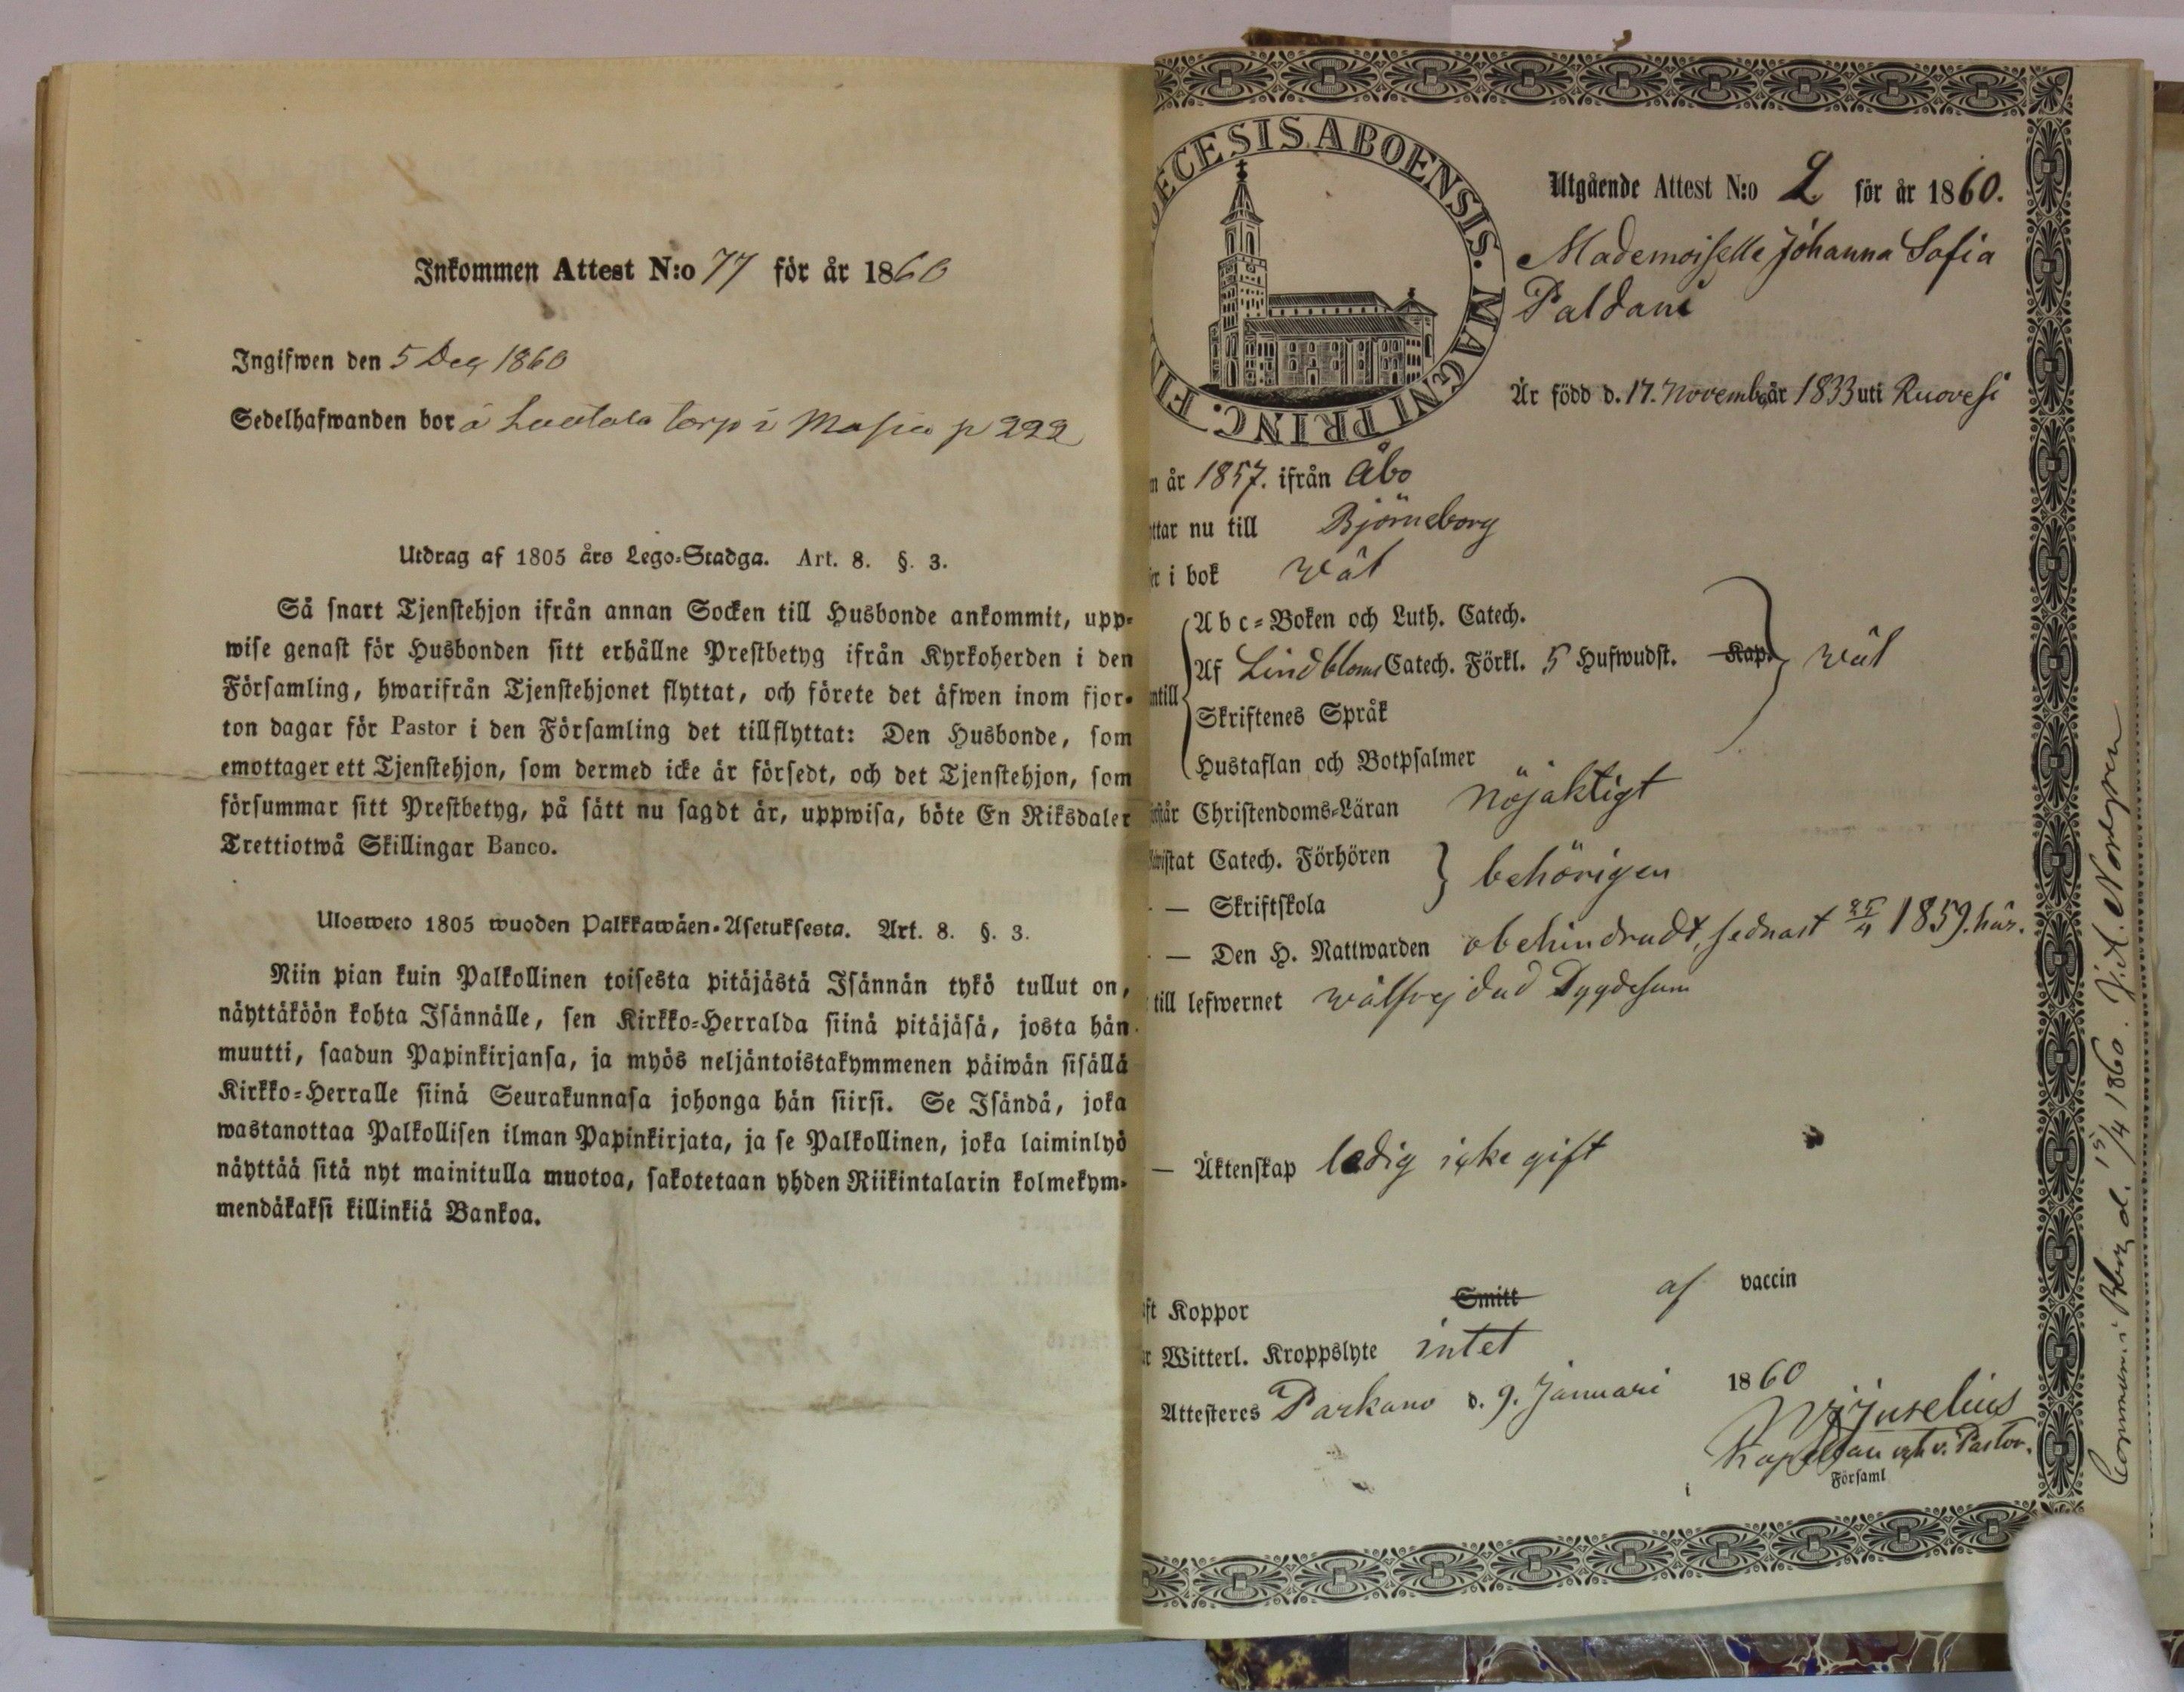 Inkommen Attest N:o 77 för år 1860
Ingifwen den 5 Dec 1860
Sedelhafwanden bor å torp i p 222
Utdrag af 1805 års Lego-Stadga. Art. 8. §. 3.
Så snart Tjenstehjon ifrån annan Socken till Husbonde ankommit, upp-
wise genast för Husbonden sitt erhållne Prestbetyg ifrån Kyrkoherden i den
Församling, hwarifrån Tjenstehjonet flyttat, och förete det äfwen inom fjor-
ton dagar för Pastor i den Församling det tillflyttat: Den Husbonde, som
emottager ett Tjenstehjon, som dermed icke är försedt, och det Tjenstehjon, som
försummar sitt Prestbetyg, på sätt nu sagdt är, uppwisa, böte En Riksdaler
Trettiotwå Skillingar Banco.
Ulosweto 1805 wuoden Palkkawäen-Asetuksesta. Art. 8. §. 3.
Niin pian kuin Palkollinen toisesta pitäjästä Isännän tykö tullut on,
näyttäköön kohta Isännälle, sen Kirkko-Herralda siinä pitäjäsä, josta hän
muutti, saadun Papinkirjansa, ja myös neljäntoistakymmenen päiwän sisällä
Kirkko-Herralle siinä Seurakunnasa johonga hän siirsi. Se Isändä, joka
wastanottaa Palkollisen ilman Papinkirjata, ja se Palkollinen, joka laiminlyö
näyttää sitä nyt mainitulla muotoa, sakotetaan yhden Riikintalarin kolmekym-
mendäkaksi killinkiä Bankoa.
ECESIS ABOENSIS. MAGNI PRINC. FIN
Utgående Attest N:o 2 för år 1860.
Mademoiselle Johanna Sofia
Paldani
Är född d. 17. Novemb. år 1833 uti Ruovesi
n år 1857. ifrån Åbo
ttar nu till Björneborg
er i bok wäl
Abc-Boken och Luth. Catech.
Af Lindbloms Catech. Förkl. 5 Hufwudst. Kap. wäl
ntill
Skriftenes Språk
Hustaflan och Botpsalmer
står Christendoms-Läran nöjaktigt
wistat Catech. Förhören
behörigen
- — Skriftskola
- — Den H. Nattwarden obehindradt, sednast 25/4 1859. här.
till lefwernet wälfrejdad Dygdesam
— Äktenskap ledig icke gift
ft Koppor Smitt af vaccin
r Witterl. Kroppslyte intet
Attesteres Parkano d. 9. Januari 1860
Kapellan och v. Pastor.
i Församl
Commun. i Bbrg d. 15/4 1860. J. A. Nordgren